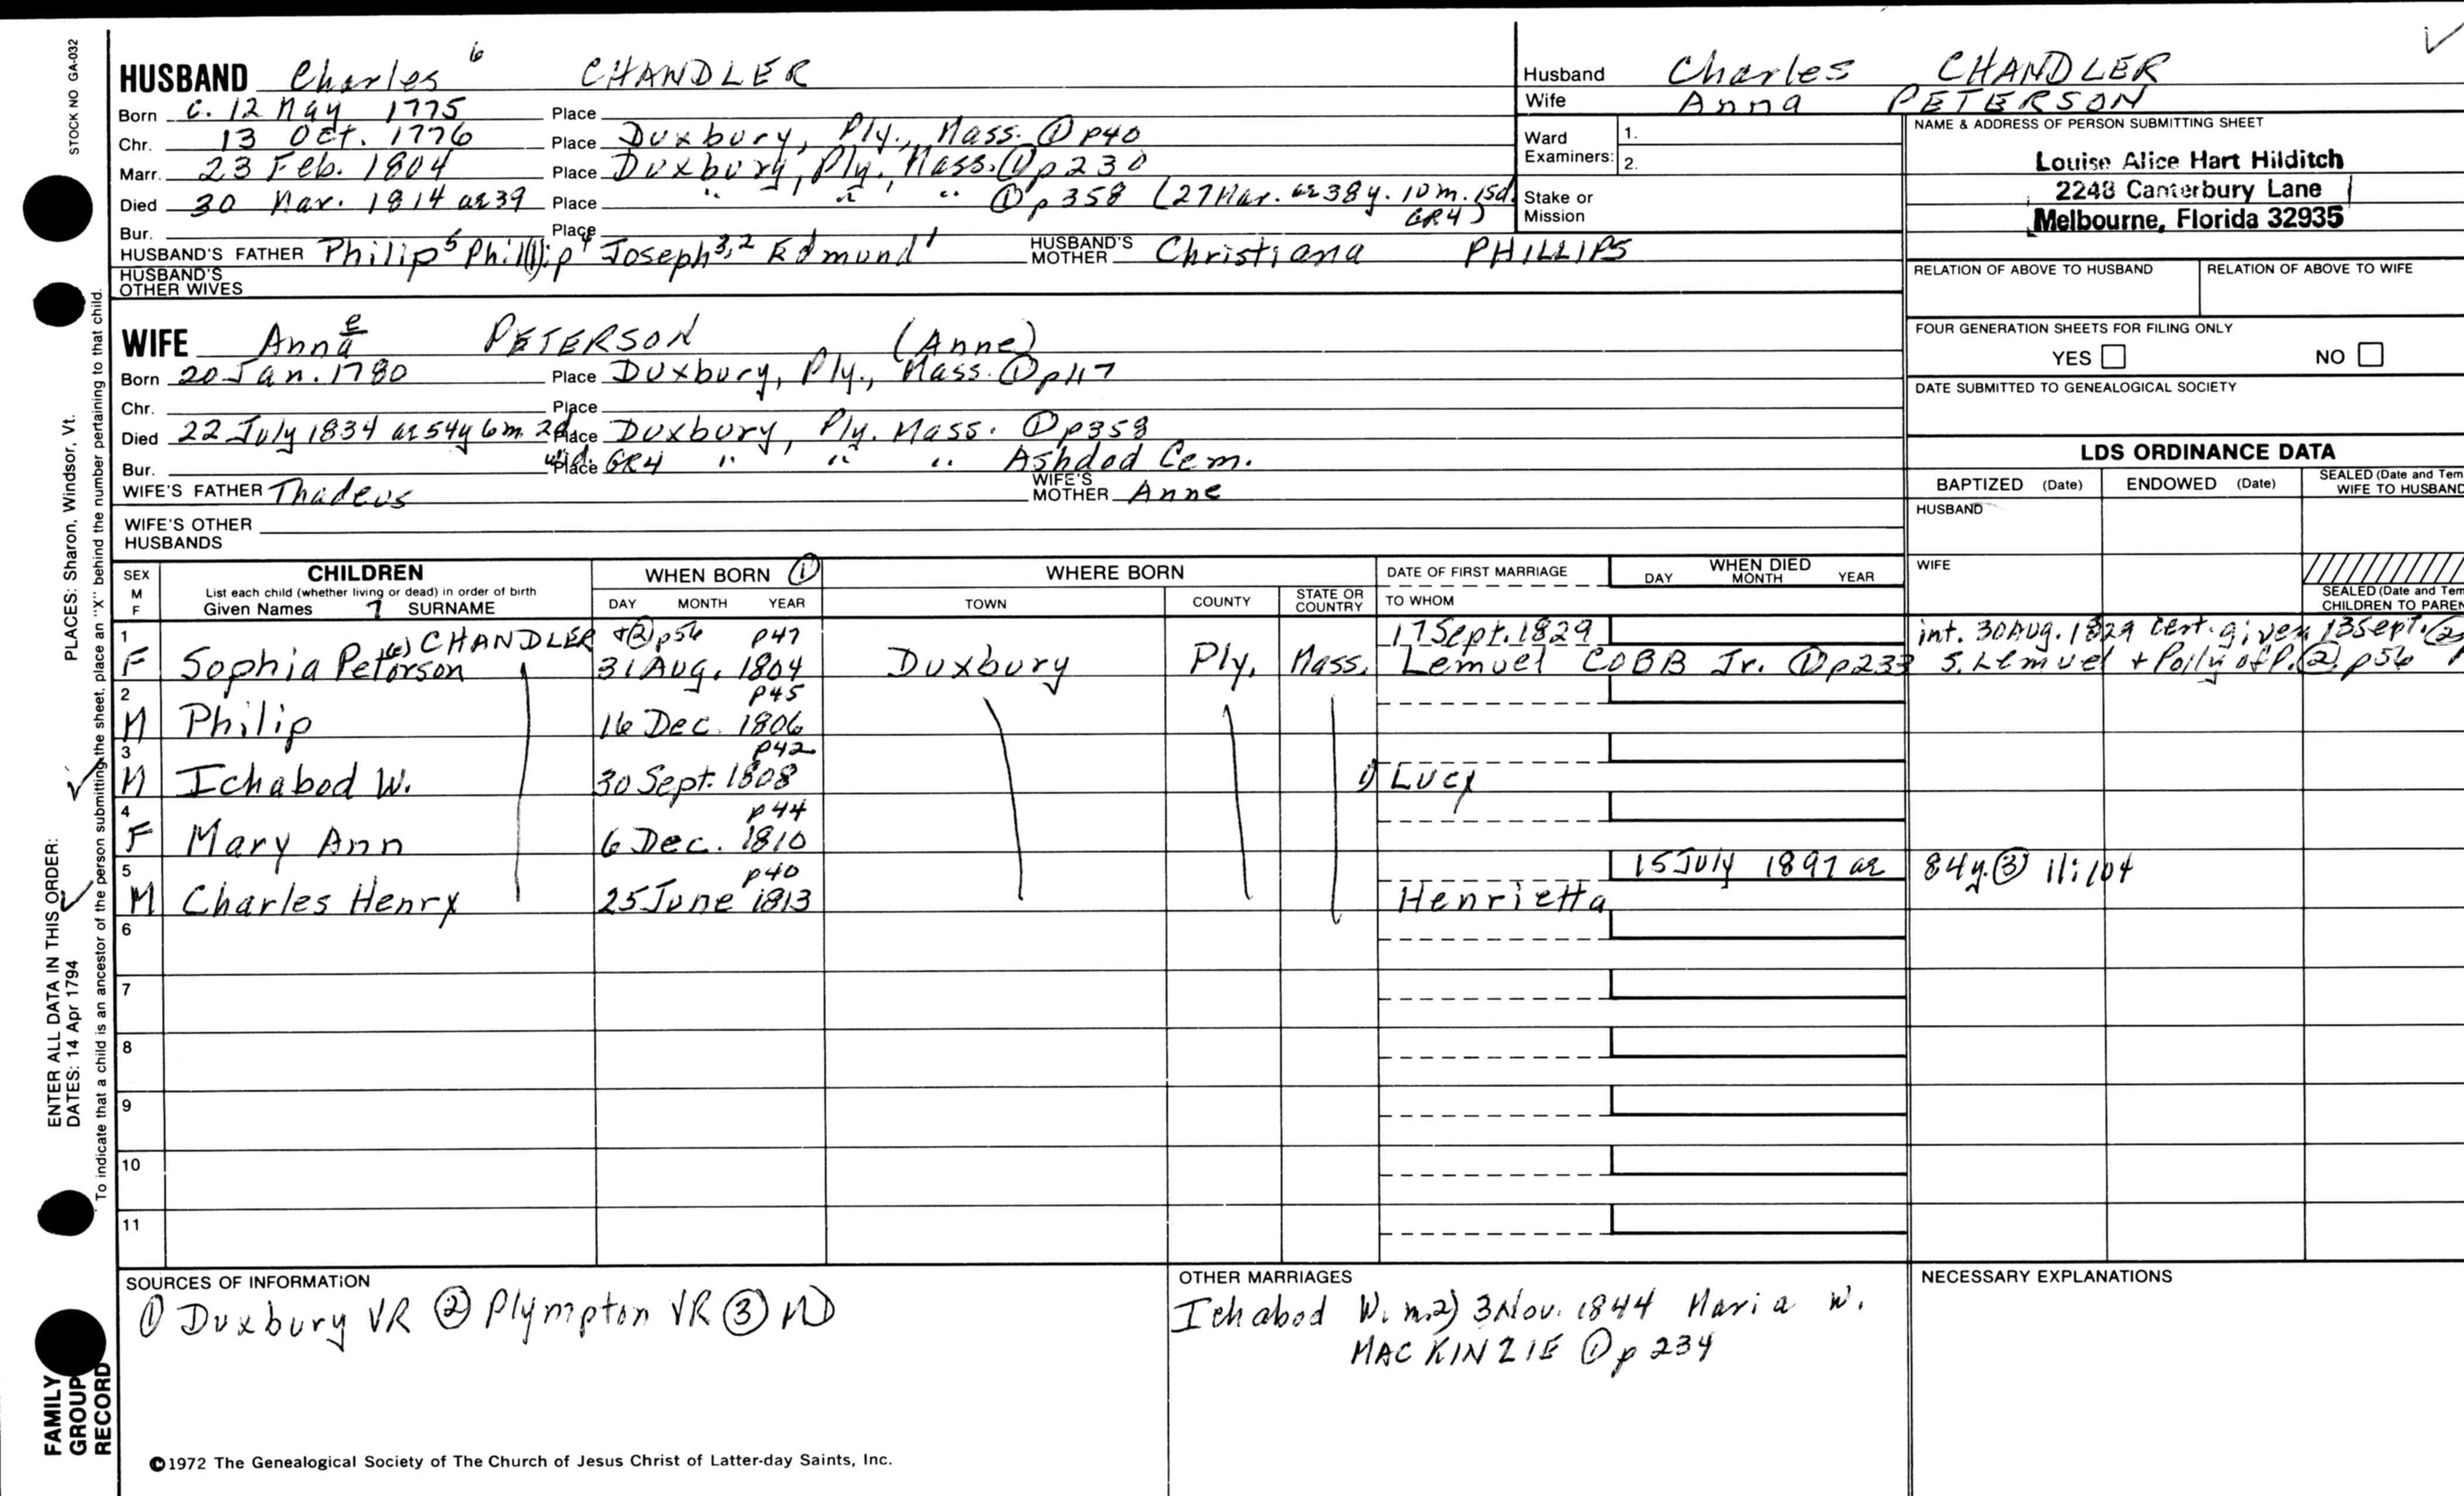 STOCK NO GA-032
HUSBAND Charles 6 CHANDLER
Born c. 12 May 1775 Place
Chr. 13 Oct. 1776 Place Duxbury, Ply., Mass. ① p40
Marr. 23 Feb. 1804 Place Duxbury, Ply., Mass. ① p230
Died 30 Mar. 1814 ae 39 Place " " " ① p358 (27 Mar. ae 38y. 10m. 15d.
GR4)
Bur. Place
HUSBAND'S FATHER Philip5 Phil(l)ip4 Joseph3,2 Edmund1 HUSBAND'S MOTHER Christiana PHILLIPS
HUSBAND'S OTHER WIVES
Husband Charles CHANDLER
Wife Anna PETERSON
Ward Examiners: 1.
2.
Stake or Mission
NAME & ADDRESS OF PERSON SUBMITTING SHEET
Louise Alice Hart Hilditch
2248 Canterbury Lane
Melbourne, Florida 32935
RELATION OF ABOVE TO HUSBAND RELATION OF ABOVE TO WIFE
FOUR GENERATION SHEETS FOR FILING ONLY
YES NO
DATE SUBMITTED TO GENEALOGICAL SOCIETY
WIFE Anna e PETERSON (Anne)
Born 20 Jan. 1780 Place Duxbury, Ply., Mass. ① p117
Chr. Place
Died 22 July 1834 ae 54y 6m 2d Place Duxbury, Ply. Mass. ① p358
Bur. wid. Place GR4 " " " Ashdod Cem.
WIFE'S FATHER Thadeus WIFE'S MOTHER Anne
WIFE'S OTHER HUSBANDS
LDS ORDINANCE DATA
BAPTIZED (Date) ENDOWED (Date) SEALED (Date and Tem
WIFE TO HUSBAND
HUSBAND
WIFE
SEALED (Date and Tem
CHILDREN TO PAREN
SEX M F CHILDREN WHEN BORN ① WHERE BORN DATE OF FIRST MARRIAGE WHEN DIED
List each child (whether living or dead) in order of birth
Given Names 7 SURNAME DAY MONTH YEAR TOWN COUNTY STATE OR COUNTRY TO WHOM DAY MONTH YEAR
1 (e) CHANDLER +② p56 p47 17 Sept. 1829 int. 30 Aug. 1829 cert. given 13 Sept. ②
F Sophia Peterson 31 Aug. 1804 Duxbury Ply. Mass. Lemuel COBB Jr. ① p233 s. Lemuel + Polly of P. ② p56
2 p45
M Philip 16 Dec. 1806
3 p42
M Ichabod W. 30 Sept. 1808 1) Lucy
4 p44
F Mary Ann 6 Dec. 1810
5 p40 15 July 1897 ae 84y. ③ 11:104
M Charles Henry 25 June 1813 Henrietta
6
7
8
9
10
11
SOURCES OF INFORMATION
① Duxbury VR ② Plympton VR ③ MD
OTHER MARRIAGES
Ichabod W. m. 2) 3 Nov. 1844 Maria W.
MACKINZIE ① p 234
NECESSARY EXPLANATIONS
©1972 The Genealogical Society of The Church of Jesus Christ of Latter-day Saints, Inc.
ENTER ALL DATA IN THIS ORDER:
DATES: 14 Apr 1794 PLACES: Sharon, Windsor, Vt.
To indicate that a child is an ancestor of the person submitting the sheet, place an "X" behind the number pertaining to that child.
FAMILY
GROUP
RECORD